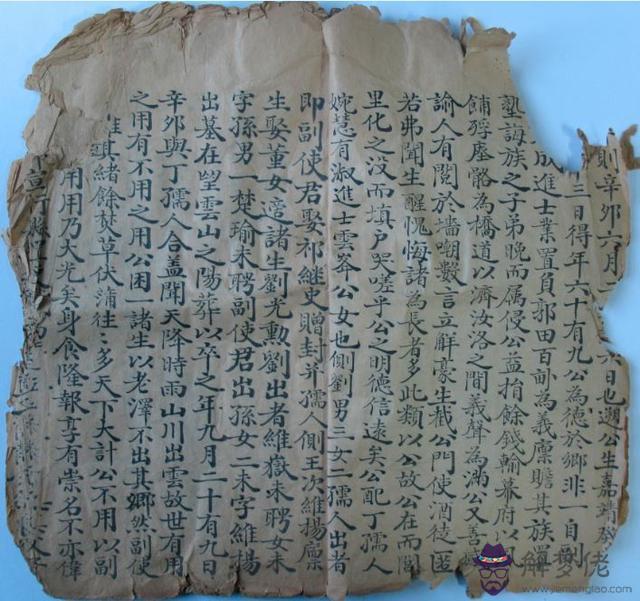 則辛卯六月
六日也遡公生嘉靖癸
三日得年六十有九公為德於鄉非一自
成進士業置負郭田百畝為義廩贍其族置
塾誨族之子弟晚而属侵公益捐餘錢輸幕府以
餔殍瘞骼為橋道以濟汝洛之間義聲為滿公又善
諭人有鬩於墻嘲數言立觧豪生截公門使酒徒匿
若弗聞生醒愧悔諸為長者多此類以公故公在而閭
里化之没而填户哭嗟乎公之明德信逺矣公配丁孺人
婉慧有淑進士雲峯公女也側劉男三女二孺人出者
即副使君娶祁継史贈封并孺人側王次維揚廪
生娶董女適諸生劉光勲劉出者維嶽未聘女未
字孫男一楚瑜未聘副使君出孫女二未字維揚
出墓在望雲山之陽葬以卒之年九月二十有九日
辛夘與丁孺人合盖聞天降時雨山川出雲故世有用
之用有不用之用公困一諸生以老澤不出其鄉然副使
維其緒餘焚草伏蒲往々多天下大計公不用以副
用用乃大光矣身食隆報享有崇名不亦偉
解夢佬
www.jiemenglao.com